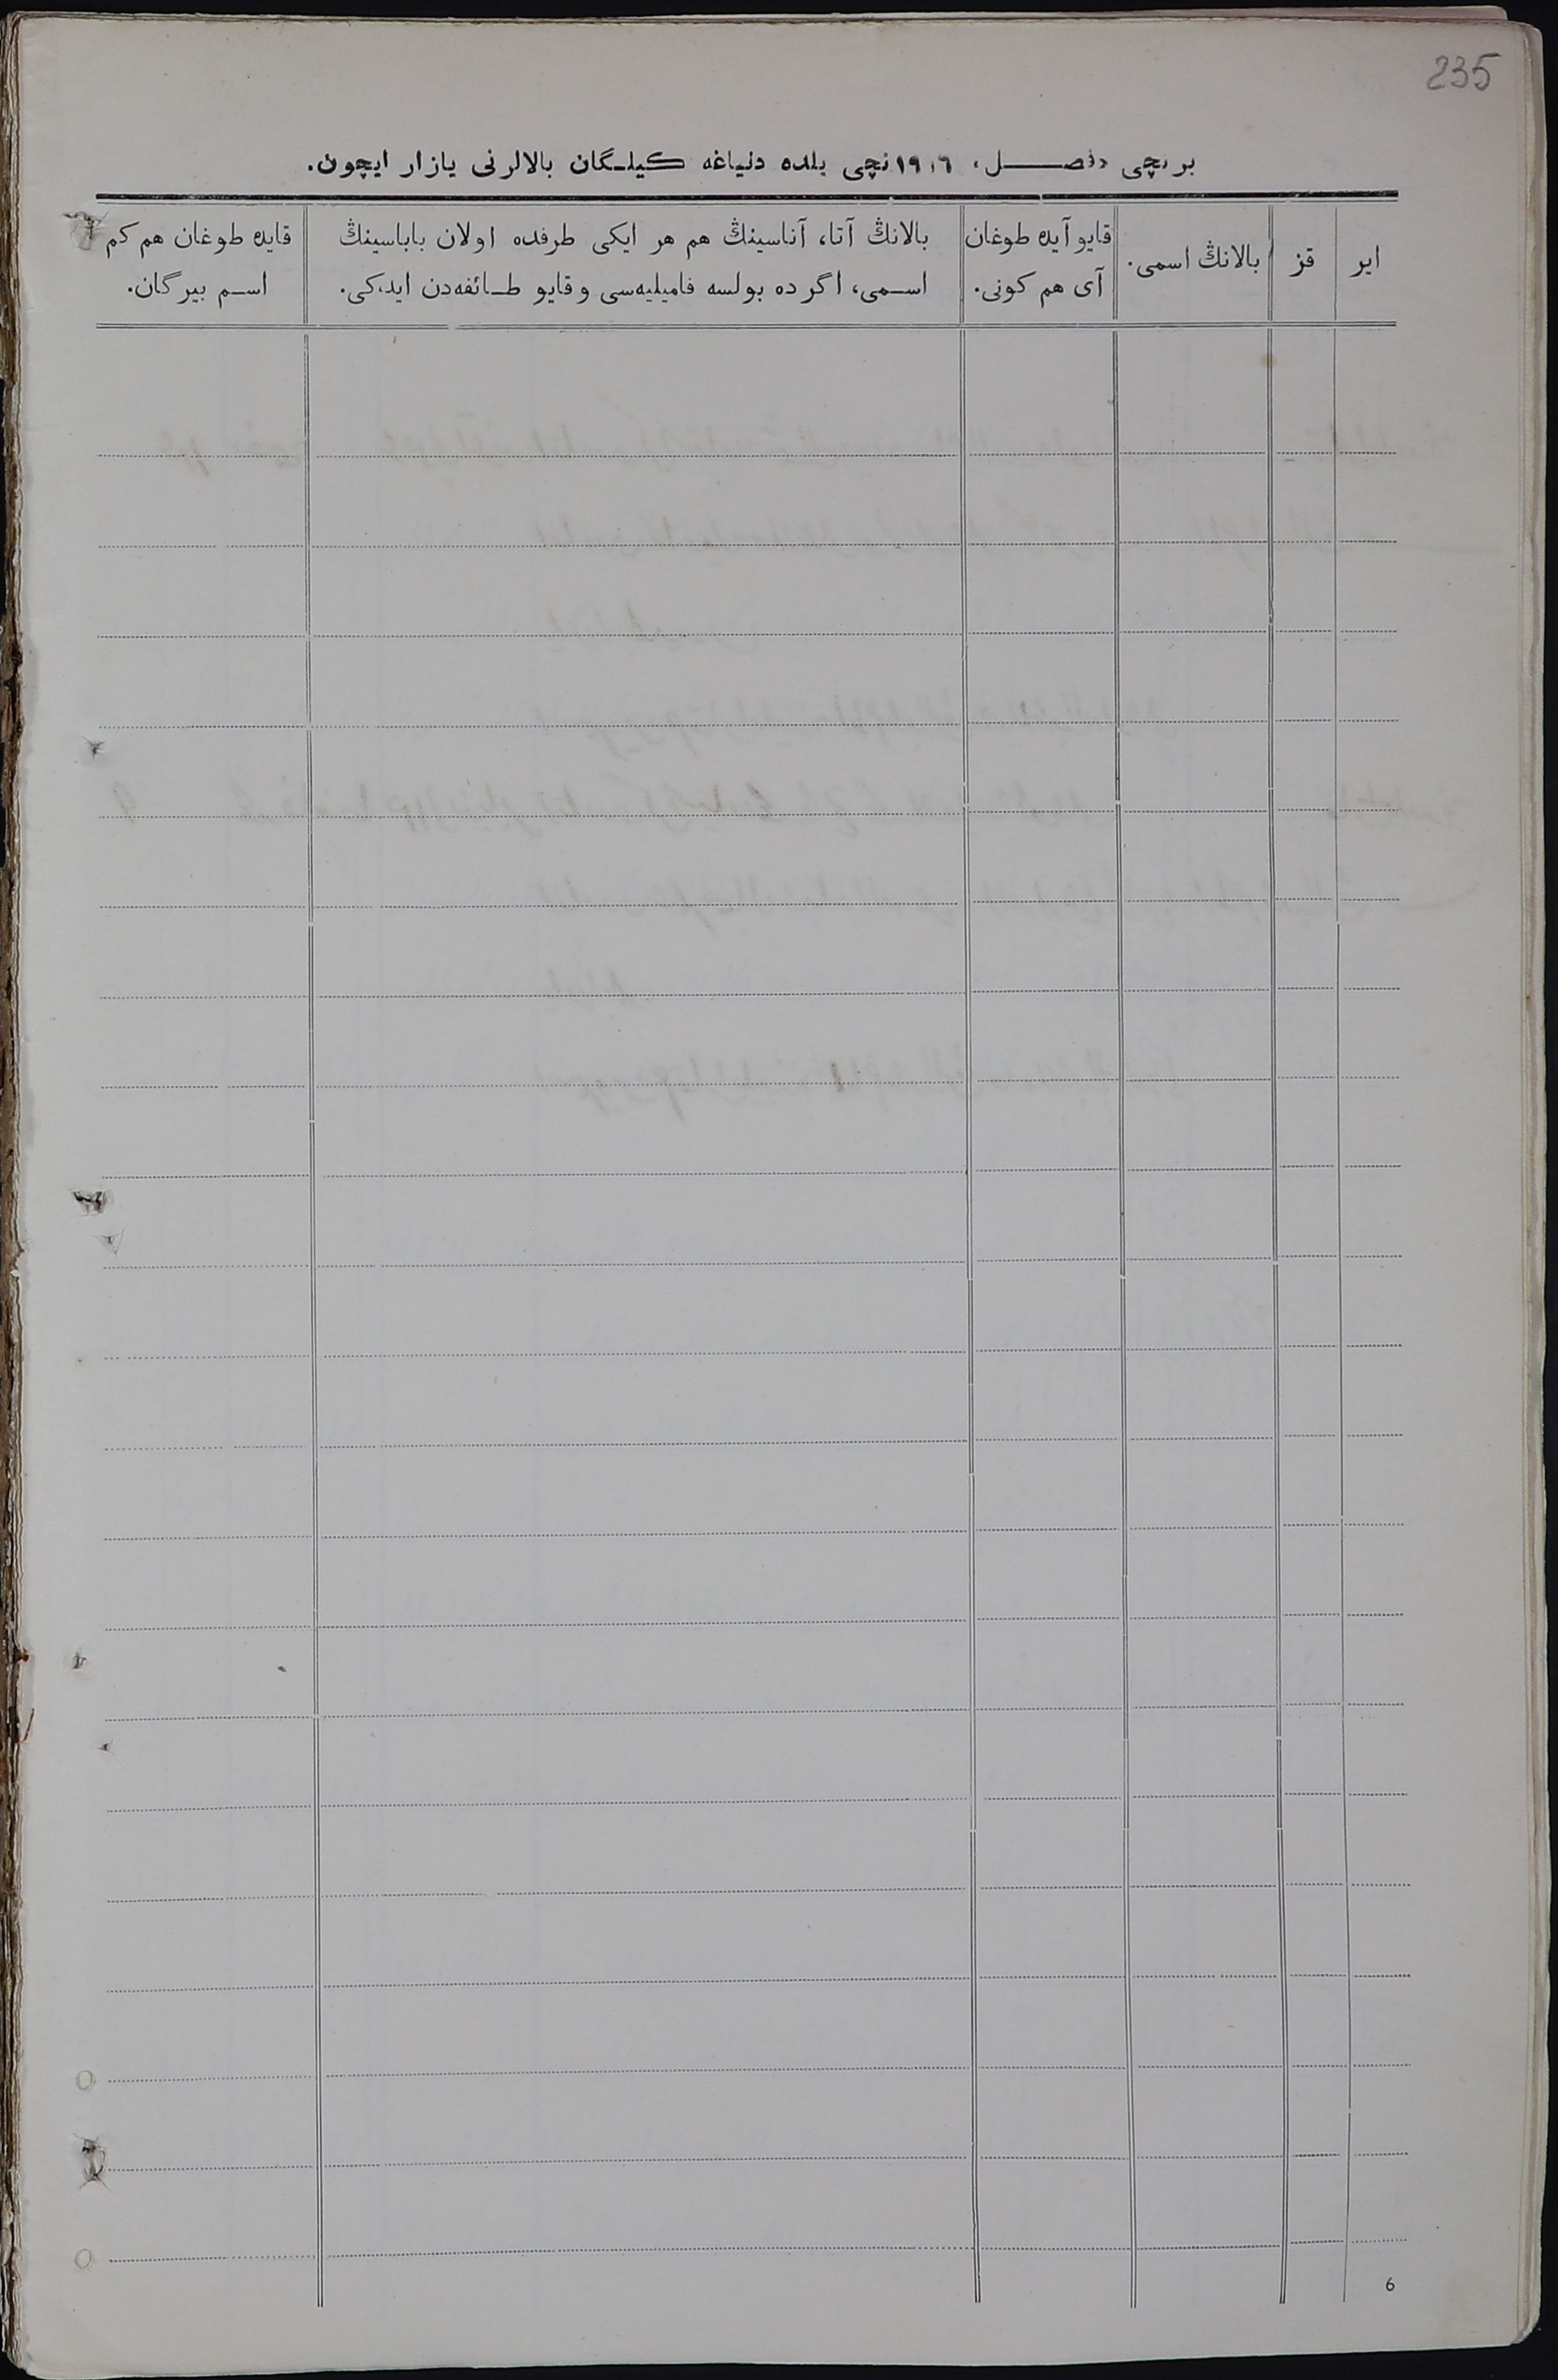 235
برنچی «فصل» ١٩٠٦نچی یلده دنیاغه كیلگان بالالرنی یازار ایچون.
ایر
قز
بالانڭ اسمی.
قایو آیده طوغان
آی هم كونی.
بالانڭ آتا، آناسینڭ هم هر ایكی طرفده اولان باباسینڭ
اسمی، اگر ده بولسه فامیلیه‌سی و قایو طائفه‌دن ایدكی.
قایده طوغان هم كم
اسم بیرگان.
6